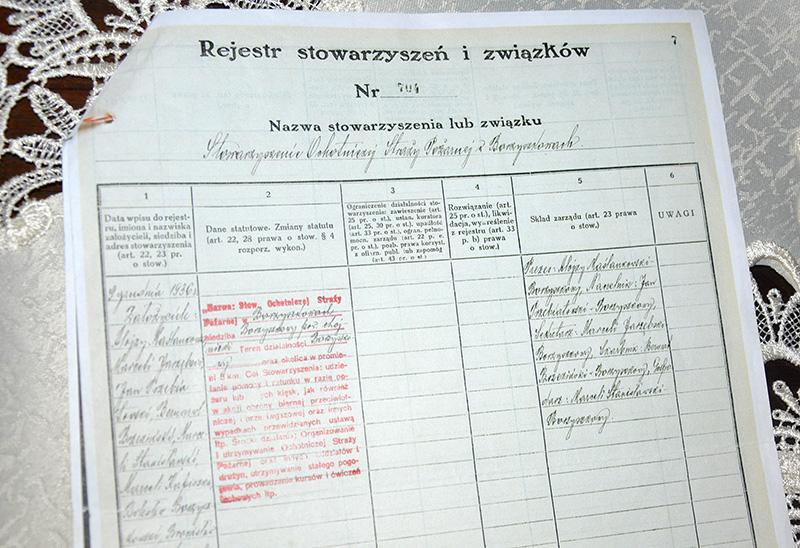 7
Rejestr stowarzyszeń i związków
Nr 704
Nazwa stowarzyszenia lub związku
Stowarzyszenie Ochotniczej Straży Pożarnej w Borzyszkowach
1
Data wpisu do rejestru, imiona i nazwiska założycieli, siedziba i adres stowarzyszenia (art. 22, 23 pr. o stow.)
2
Dane statutowe. Zmiany statutu
(art. 22, 28 prawa o stow. § 4
rozporz. wykon.)
3
Ograniczenie działalności sto-
warzyszenia: zawieszenie (art.
25 pr. o st.), ustan. kuratora
(art. 25, 30 pr. o st.), upadłość
(art. 33 pr. o st.), ogran. pełno-
mocn. zarządu (art. 22 p. e.
pr. o st.), pozb. prawa korzyst.
z ofiarn. publ. lub zapomóg
(art. 43 pr. o st.)
4
Rozwiązanie (art.
25 pr. o st.), likwi-
dacja, wykreślenie
z rejestru (art. 33
p. b) prawa o
stow.)
5
Skład zarządu (art. 23 prawa
o stow.)
6
UWAGI
2 grudnia 1936 r.
Założyciele:
Alojzy
Marceli
Jan
Bernard
Marceli
Bolesław
„Nazwa: Stow. Ochotniczej Straży
Pożarnej w Borzyszkowach
siedziba Borzyszkowy pow. choj
nicki Teren działalności
oraz okolica w promie-
ni 8 km. Cel Stowarzyszenia: udzie-
lanie pomocy i ratunku w razie po-
żaru lub innych klęsk, jak również
w akcji obrony biernej przeciwlot-
niczej i przeciwgazowej oraz innych
wypadkach przewidzianych ustawą
itp. Środki działania: Organizowanie
i utrzymywanie Ochotniczej Straży
Pożarnej oraz innych oddziałów i
drużyn, utrzymywanie stałego pogo-
towia, prowadzenie kursów i ćwiczeń
fachowych itp.
Prezes: Alojzy
Borzyszkowy, Naczelnik: Jan
Borzyszkowy,
Sekretarz: Marceli
Borzyszkowy, Skarbnik: Bernard
Borzyszkowy,
Marceli
Borzyszkowy